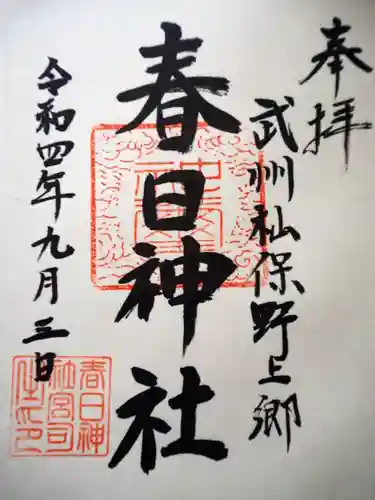 奉拝
武州私保野上郷
春日神社
令和四年九月三日
春日神
社宮司